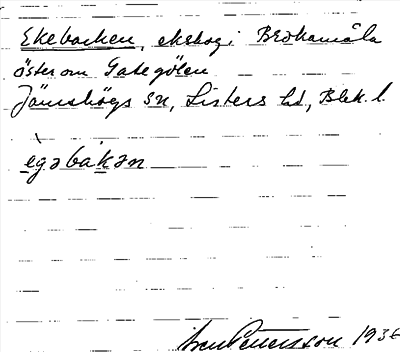 Ekebacken, ekskog i Brokamåla
öster om Gategölen
Jämshögs sn, Listers hd, Blek. l.
ègəbakən
Pettersson 193